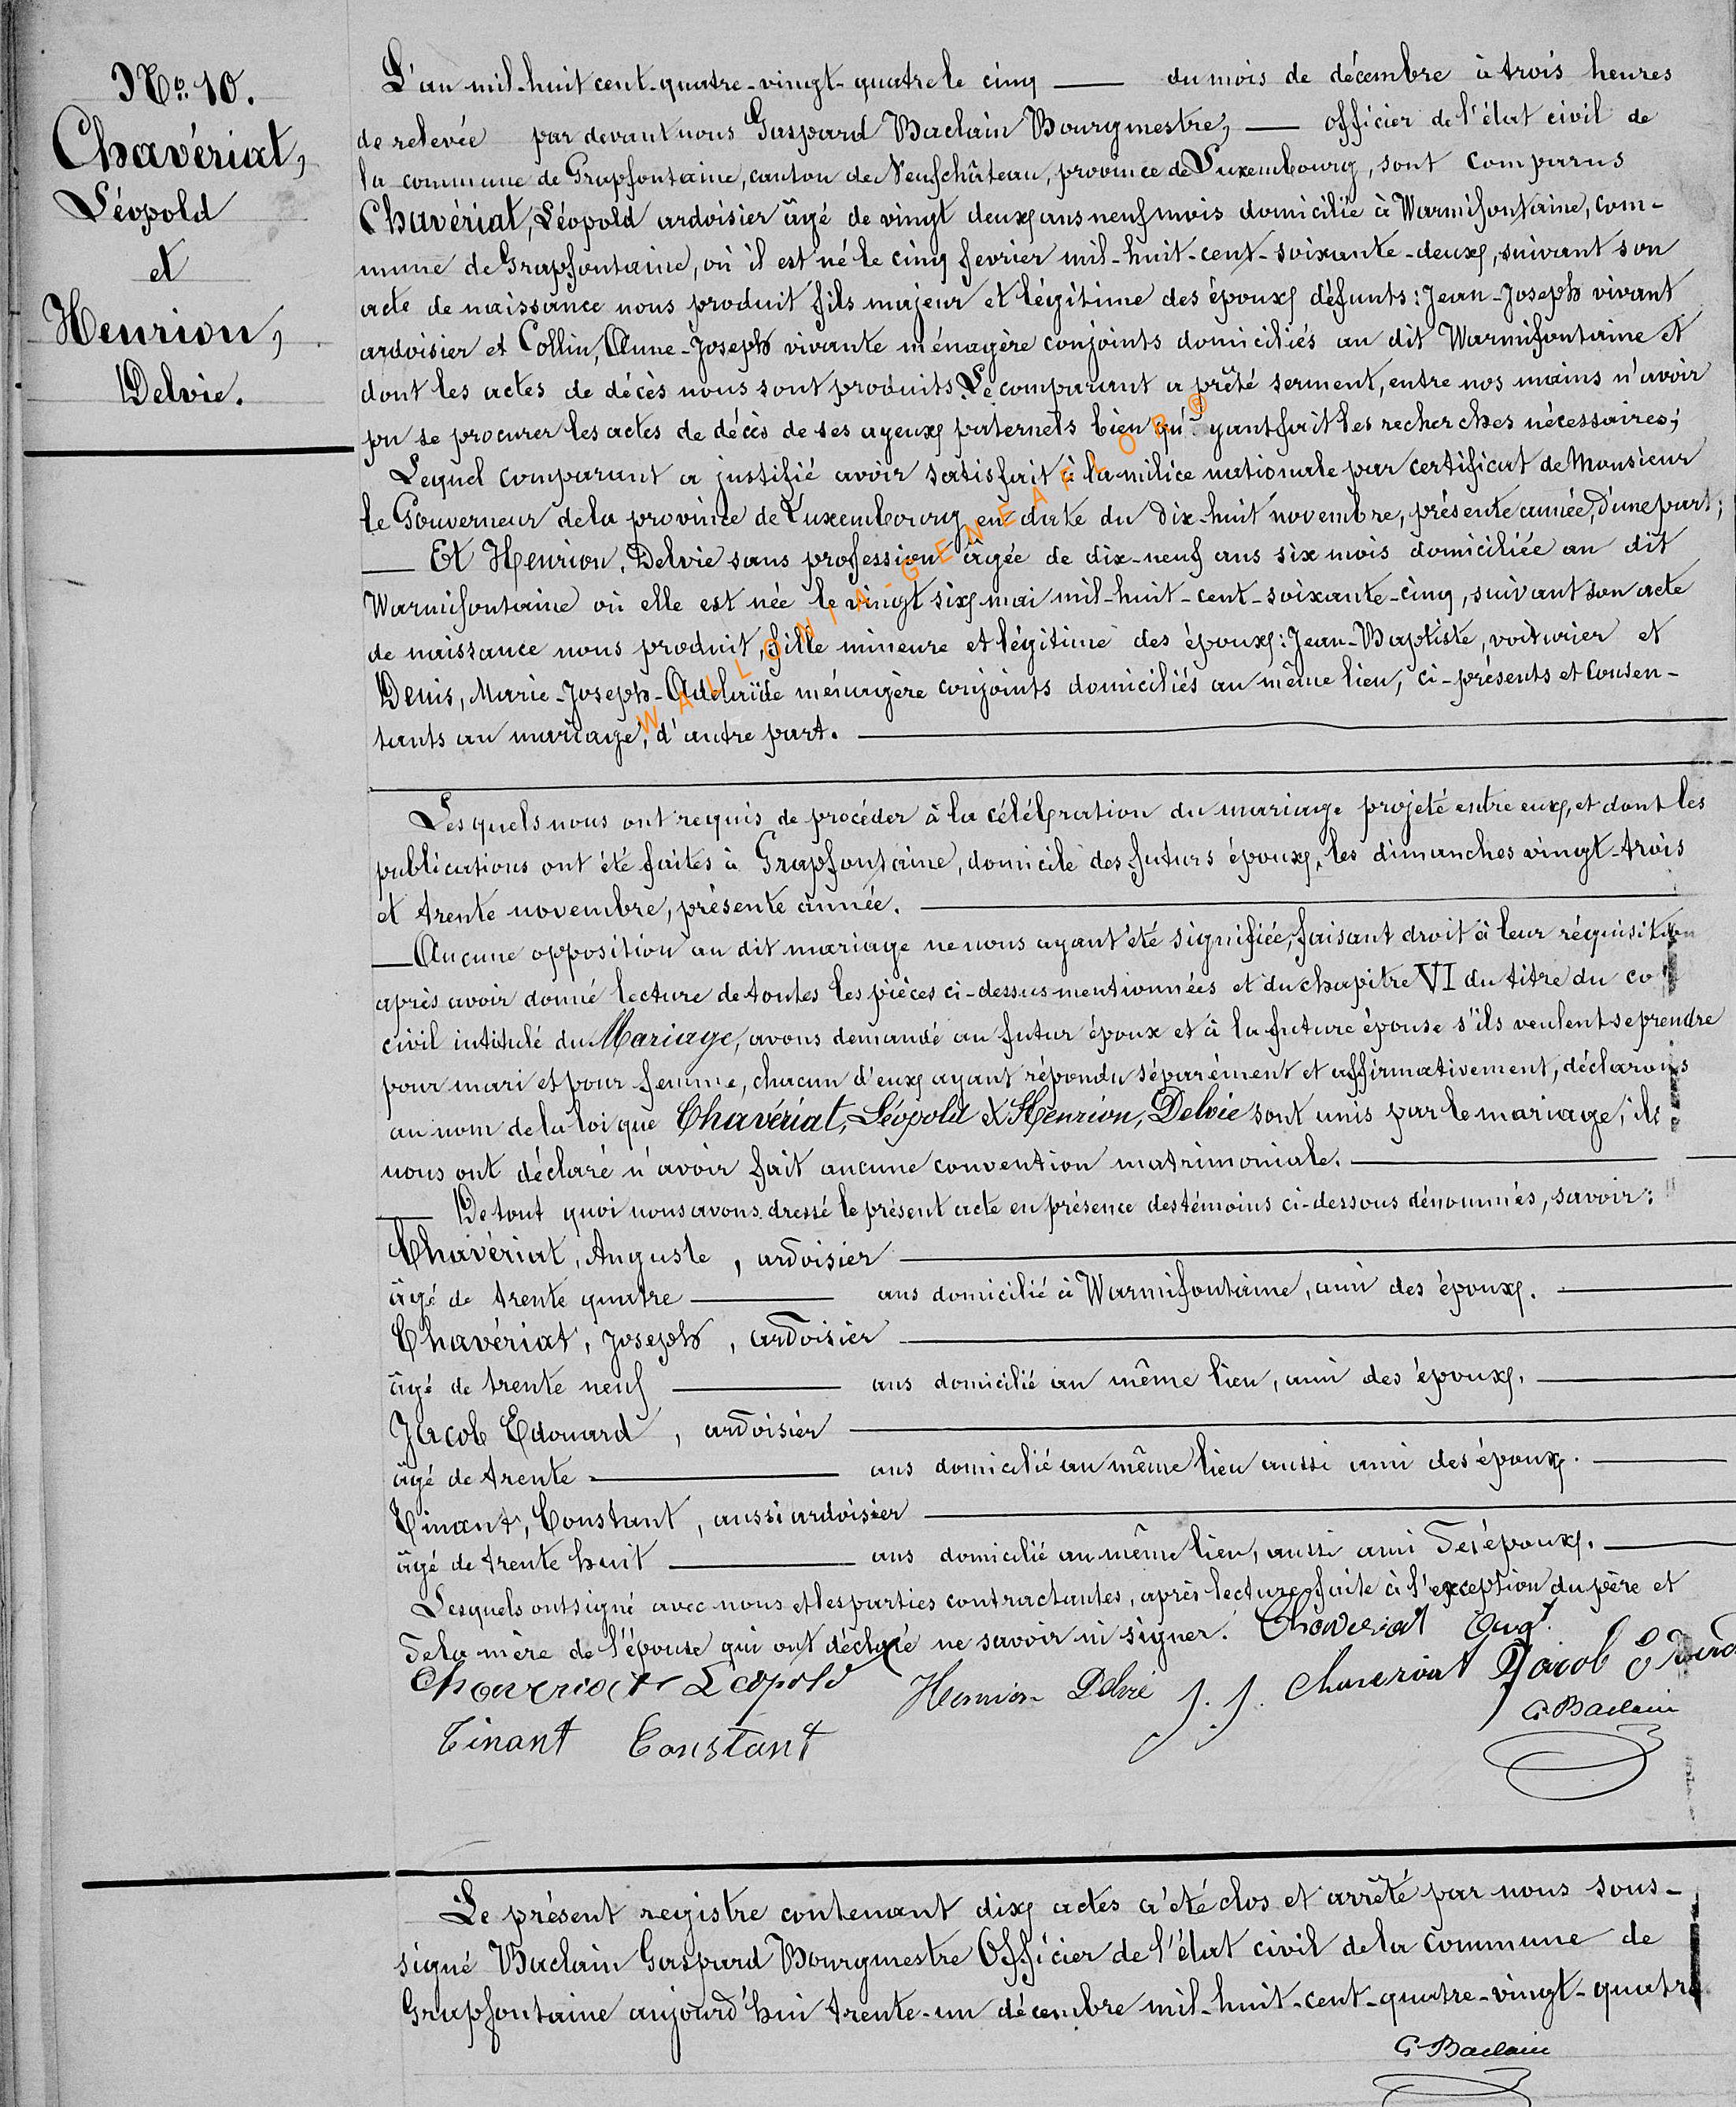 No. 10.
Chavériat,
Léopold
et
Henrion,
Delvie.
L'an mil-huit cent-quatre-vingt-quatre le cinq — du mois de décembre à trois heures
de relevée par devant nous Gaspard Baclain Bourgmestre, — officier de l'état civil de
la commune de Grapfontaine, canton de Neufchâteau, province de Luxembourg, sont comparus
Chavériat, Léopold ardoisier âgé de vingt deux ans neuf mois domicilié à Warmifontaine, com-
mune de Grapfontaine, où il est né le cinq fevrier mil-huit-cent-soixante-deux, suivant son
acte de naissance nous produit fils majeur et légitime des époux défunts: Jean-Joseph vivant
ardoisier et Collin, Anne-Joseph vivante ménagère conjoints domiciliés au dit Warmifontaine et
dont les actes de décès nous sont produits. Le comparant a prêté serment, entre nos mains n'avoir
pu se procurer les actes de décès de ses ayeux paternels bien qu'ayant fait les recherches nécessaires;
Lequel comparant a justifié avoir satisfait à la milice nationale par certificat de Monsieur
le Gouverneur de la province de Luxembourg en date du dix-huit novembre, présente année, d'une part;
— Et Henrion, Delvie sans profession âgée de dix-neuf ans six mois domiciliée au dit
Warmifontaine où elle est née le vingt six mai mil-huit-cent-soixante-cinq, suivant son acte
de naissance nous produit, fille mineure et légitime des époux: Jean-Baptiste, voiturier et
Denis, Marie-Joseph-Adelaïde ménagère conjoints domiciliés au même lieu, ci-présents et consen-
tants au mariage, d'autre part. —
Lesquels nous ont requis de procéder à la célébration du mariage projeté entre eux, et dont les
publications ont été faites à Grapfontaine, domicile des futurs époux, les dimanches vingt-trois
et trente novembre, présente année. —
— Aucune opposition au dit mariage ne nous ayant été signifiée, faisant droit à leur réquisition
après avoir donné lecture de toutes les pièces ci-dessus mentionnées et du chapitre VI du titre du co
civil intitulé du Mariage, avons demandé au futur époux et à la future épouse s'ils veulent se prendre
pour mari et pour femme, chacun d'eux ayant répondu séparément et affirmativement, déclarons
au nom de la loi que Chavériat, Léopold et Henrion, Delvie sont unis par le mariage; ils
nous ont déclaré n'avoir fait aucune convention matrimoniale. —
— De tout quoi nous avons dressé le présent acte en présence des témoins ci-dessous dénommés, savoir:
Chavériat, Auguste, ardoisier —
âgé de trente quatre — ans domicilié à Warmifontaine, ami des époux. —
Chavériat, Joseph, ardoisier —
âgé de trente neuf — ans domicilié au même lieu, ami des époux. —
Jacob Edouard, ardoisier —
âgé de trente — ans domicilié au même lieu aussi ami des époux. —
Tinant, Constant, aussi ardoisier —
âgé de trente huit — ans domicilié au même lieu, aussi ami des époux. —
Lesquels ont signé avec nous et les parties contractantes, après lecture faite à l'exception du père et
de la mère de l'épouse qui ont déclaré ne savoir ni signer. Chaveriat Aug.
Chaveriat Léopold Henrion Delvie J. J. Chaveriat Jacob Edouard
Tinant Constant G. Baclain
Le présent registre contenant dix actes a été clos et arrêté par nous sous-
signé Baclain Gaspard Bourgmestre Officier de l'état civil de la commune de
Grapfontaine aujourd'hui trente-un décembre mil-huit-cent-quatre-vingt-quatre
G. Baclain
WALLONIA-GENEAFLOR®